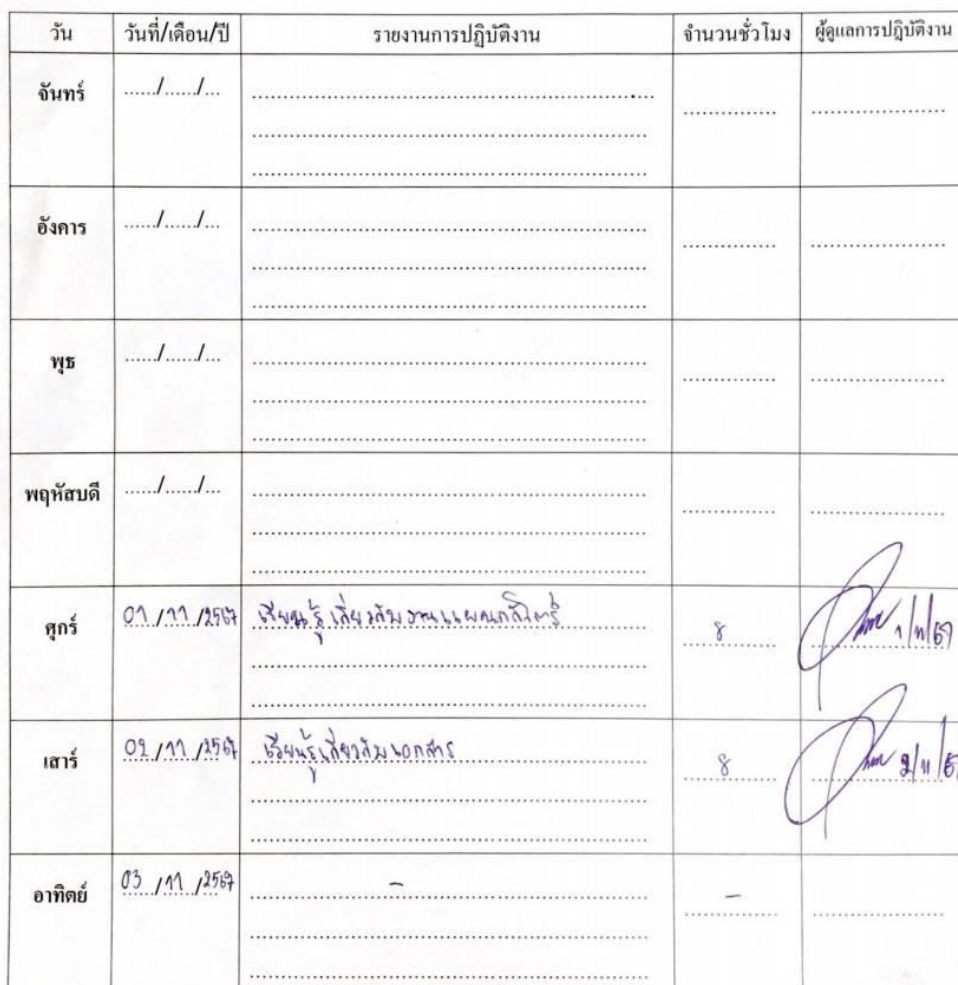 วัน วันที่/เดือน/ปี รายงานการปฏิบัติงาน จำนวนชั่วโมง ผู้ดูแลการปฏิบัติงาน
จันทร์ ....../....../...
อังคาร ....../....../...
พุธ ....../....../...
พฤหัสบดี ....../....../...
ศุกร์ 01/11/2567 เรียนรู้เกี่ยวกับงานแผนก 8 1/11/67
เสาร์ 02/11/2567 เรียนรู้เกี่ยวกับเอกสาร 8 2/11/67
อาทิตย์ 03/11/2567 - -